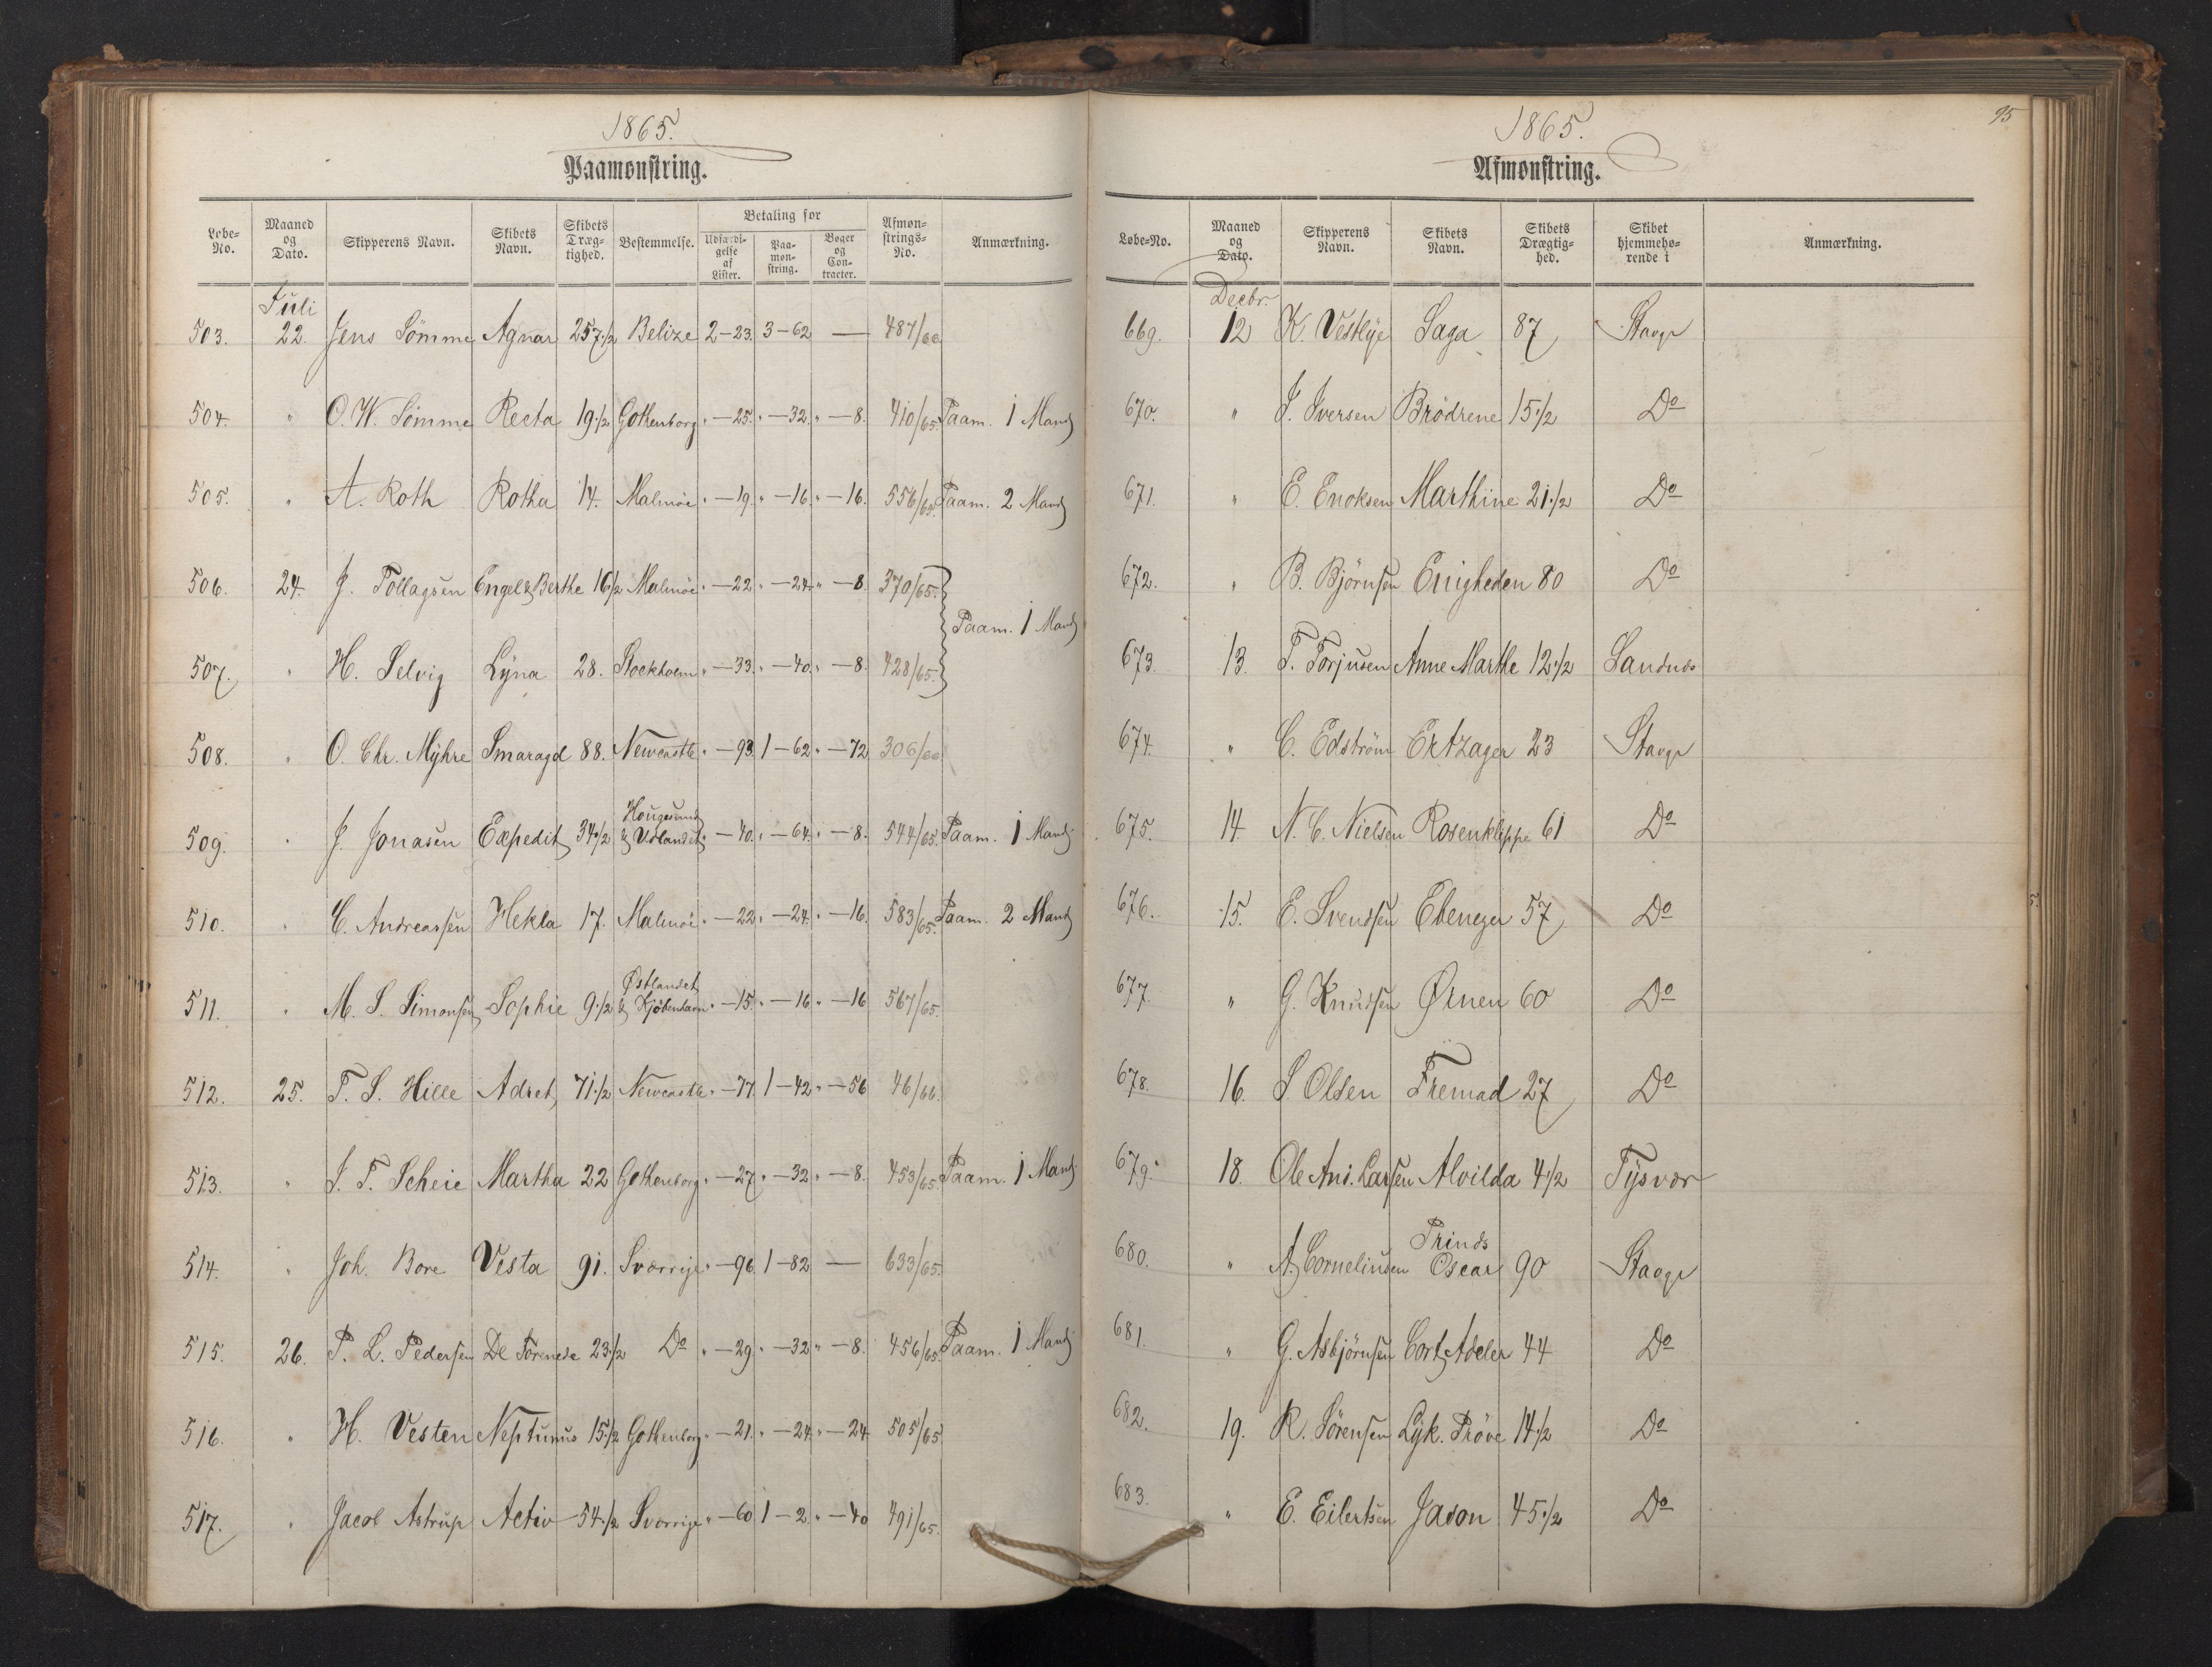 1865.
Paamønstring.
Løbe-No. | Maaned og Dato. | Skipperens Navn. | Skibets Navn. | Skibets Dræg-tighed. | Bestemmelse. | Betaling for | Udfærdi-gelse af Lister. | Paa-møn-string. | Bøger og Con-tracter. | Afmøn-strings-No. | Anmærkning.
Juli
503. 22. Jens Sömme Agnar 257 1/2 Belize 2-23. 3-62 — 487/66
504. " O. W. Sömme Recta 19 1/2 Gothenborg " -25. " -32. " -8. 410/65. Paam. 1 Mand
505. " A. Roth Rotha 14. Malmöe " -19. " -16. " -16. 556/65. Paam. 2 Mand
506. 24. J. Tollagsen Engel & Berthe 16 1/2 Malmöe " -22 " -24. " -8 370/65.
Paam. 1 Mand
507. " H. Selvig Lyna 28. Stockholm " -33. " -40. " -8. 428/65.
508. " O. Chr. Myhre Smaragd 88. Newcastle " -93. 1-62 " -72 306/66
509. " J. Jonasen Expedit 34 1/2 Hougesund & Udlandet " -40. " -64. " -8. 544/65. Paam. 1 Mand
510. " C. Andreassen Hekla 17. Malmöe " -22. " -24. " -16. 583/65. Paam. 2 Mand
511. " M. S. Simonsen Sophie 9 1/2 Østlandet & Kjöbenhavn " -15. " -16 " -16 567/65.
512. 25. T. S. Hille Adset 71 1/2 Newcastle " -77 1-42 " -56 46/66.
513. " J. T. Scheie Martha 22 Gothenborg " -27 " -32 " -8. 453/65. Paam. 1 Mand
514. " Joh. Bore Vesta 91. Sverrige " -96 1-82 — 633/65.
515. 26. P. L. Pedersen De Forenede 23 1/2 Do " -29. " -32 " -8. 456/65. Paam. 1 Mand
516. " H. Vesten Neptunus 15 1/2 Gothenborg " -21. " -24 " -24 505/65
517. " Jacob Astrup Activ 54 1/2 Sverrige " -60 1-2. " -40 491/65.
95
1865.
Afmønstring.
Løbe-No. | Maaned og Dato. | Skipperens Navn. | Skibets Navn. | Skibets Drægtig-hed. | Skibet hjemmehø-rende i | Anmærkning.
Decbr.
669. 12 K. Vestlye Saga 87 Stavgr
670. " J. Iversen Brödrene 15 1/2 Do
671. " E. Enoksen Marthine 21 1/2 Do
672. " B. Björnsen Enigheden 80 Do
673. 13. T. Torjusen Anne Marthe 12 1/2 Sandnes
674. " C. Edström Ertzager 23 Stavgr
675. 14 N. C. Nielsen Rosenklippe 61 Do
676. 15. E. Svendsen Ebenezer 57 Do
677. " G. Knudsen Ørnen 60 Do
678. 16. S. Olsen Fremad 27 Do
679. 18. Ole And. Larsen Alvilda 4 1/2 Tysvær
680. " A. Corneliusen Prinds Oscar 90 Stavgr
681. " G. Asbjörnsen Cort Adeler 44 Do
682. 19. R. Sörensen Lyk. Pröve 14 1/2 Do
683. " E. Eilertsen Jason 45 1/2 Do